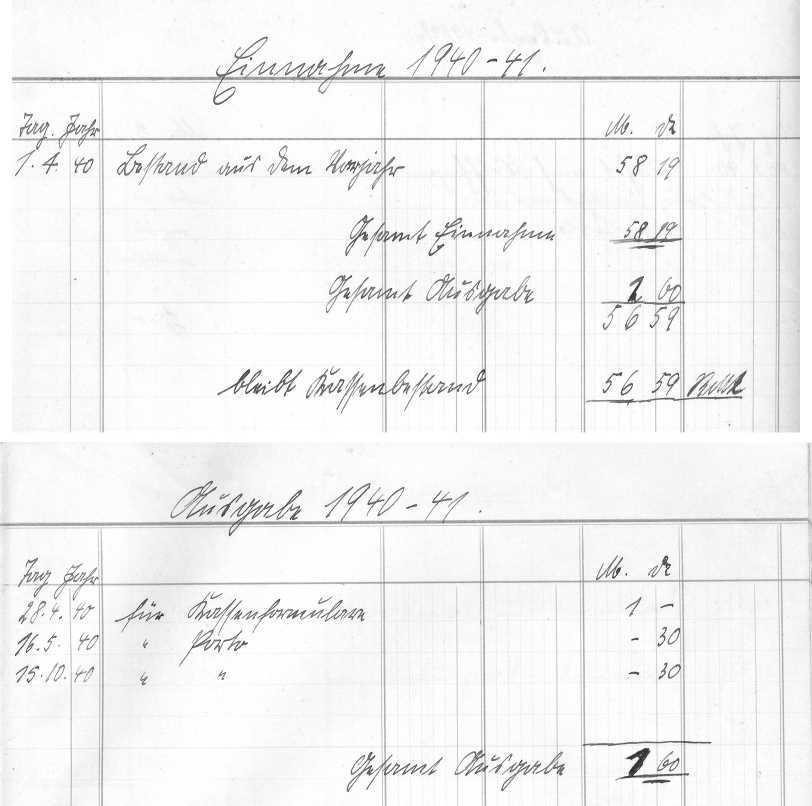 Einnahme 1940-41.
Tag. Jahr M. ₰
1. 4. 40 Bestand aus dem Vorjahr 58 19
Gesamt Einnahmen 58 19
Gesamt Ausgabe 1 60
56 59
bleibt Kassenbestand 56 59
Ausgabe 1940-41.
Tag Jahr M. ₰
28. 4. 40 für Kassenformulare 1 -
16. 5. 40 " Porto - 30
15. 10. 40 " " - 30
Gesamt Ausgabe 1 60